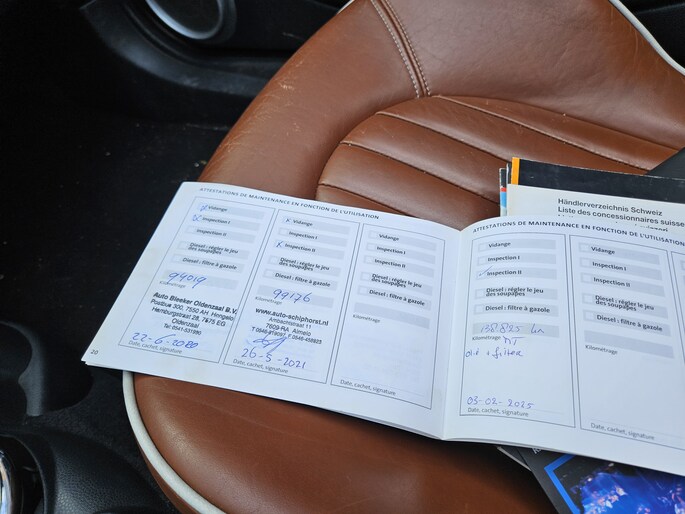 ATTESTATIONS DE MAINTENANCE EN FONCTION DE L'UTILISATION
Vidange
Inspection I
Inspection II
Diesel : régler le jeu
des soupapes
Diesel : filtre à gazole
94019
Kilométrage
Auto Bleeker Oldenzaal B.V.
Postbus 300, 7550 AH Hengelo
Hamburgstraat 28, 7575 EG
Oldenzaal
Tel: 0541-531950
22-6-2020
Date, cachet, signature
20
x Vidange
Inspection I
x Inspection II
Diesel : régler le jeu
des soupapes
Diesel : filtre à gazole
99176
Kilométrage
www.auto-schiphorst.nl
Ambachtstraat 11
7609 RA Almelo
26-5-2021
Date, cachet, signature
Vidange
Inspection I
Inspection II
Diesel : régler le jeu
des soupapes
Diesel : filtre à gazole
Kilométrage
Date, cachet, signature
Händlerverzeichnis Schweiz
Liste des concessionnaires suisse
ATTESTATIONS DE MAINTENANCE EN FONCTION DE L'UTILISATION
Vidange
Inspection I
Inspection II
Diesel : régler le jeu
des soupapes
Diesel : filtre à gazole
138825 km
Kilométrage
olie + filter
03-02-2025
Date, cachet, signature
Vidange
Inspection I
Inspection II
Diesel : régler le jeu
des soupapes
Diesel : filtre à gazole
Kilométrage
Date, cachet, signature